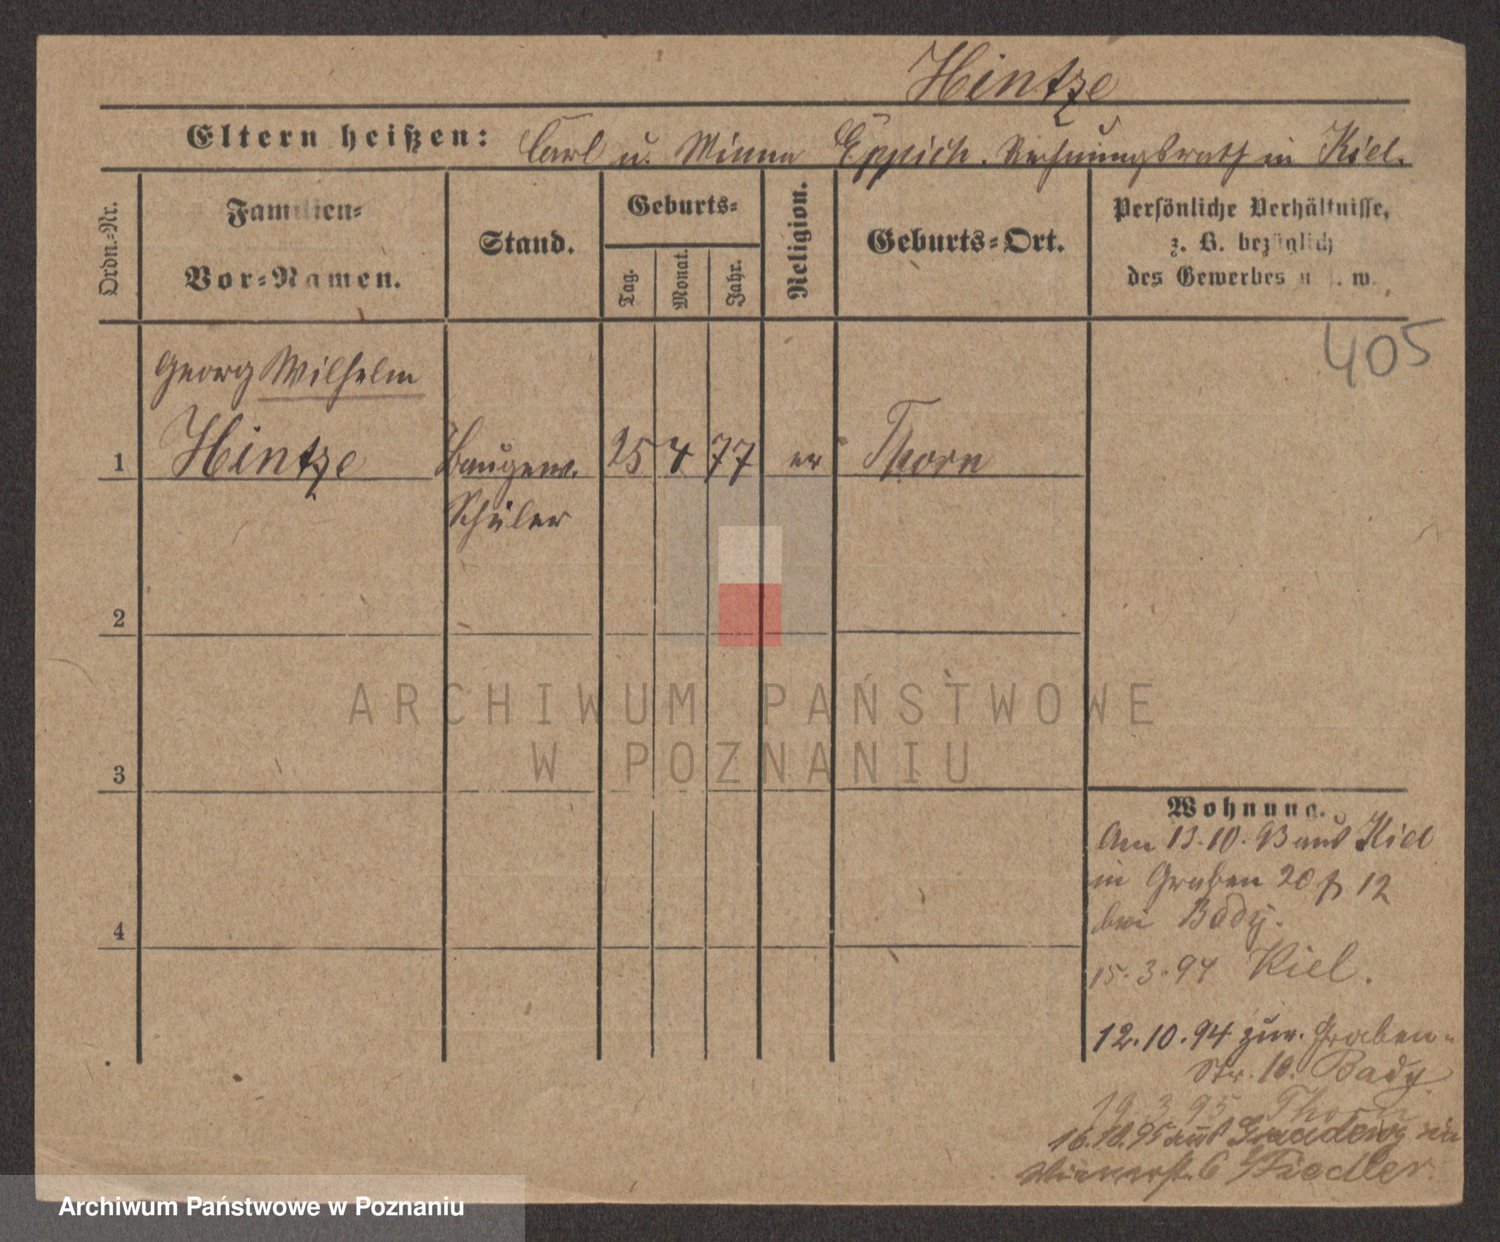 Hintze
Eltern heißen: Carl u. Minna Eppich. Rechnungsrath in Kiel.
Ordn.-Nr.
Familien-
Vor-Namen.
Stand.
Geburts-
Tag.
Monat.
Jahr.
Religion.
Geburts-Ort.
Persönliche Verhältnisse,
z. B. bezüglich
des Gewerbes u. s. w.
405
Georg Wilhelm
1 Hintze Baugew. 25 4 77 ev Thorn
Schüler
2
3
4
ARCHIWUM PAŃSTWOWE
W POZNANIU
Wohnung.
Am 13.10.93 aus Kiel
in Graben 20 12
bei Bady.
15.3.94 Kiel.
12.10.94 zur. Graben-
Str. 10. Bady
19.3.95 Thorn
16.10.95 aus Graudenz in
Wienerstr. 6 Fiedler.
Archiwum Państwowe w Poznaniu